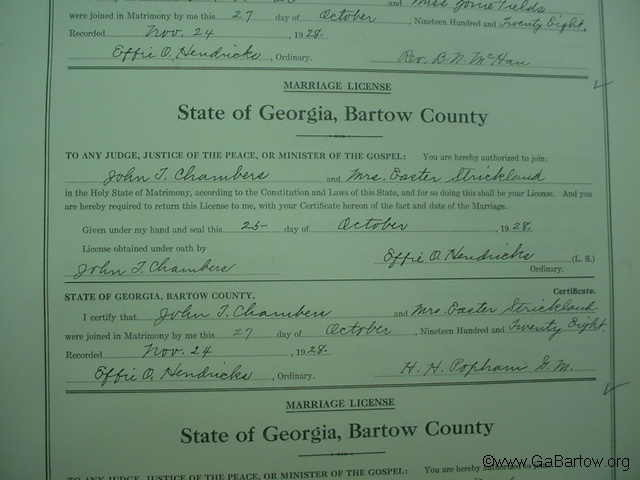 and Miss Fields
were joined in Matrimony by me this 27 day of October, Nineteen Hundred and Twenty Eight.
Recorded Nov. 24, 1928.
Effie O. Hendricks, Ordinary. Rev. B. N. McHan
MARRIAGE LICENSE
State of Georgia, Bartow County
TO ANY JUDGE, JUSTICE OF THE PEACE, OR MINISTER OF THE GOSPEL: You are hereby authorized to join:
John T. Chambers and Mrs. Easter Strickland
in the Holy State of Matrimony, according to the Constitution and Laws of this State, and for so doing this shall be your License. And you
are hereby required to return this License to me, with your Certificate hereon of the fact and date of the Marriage.
Given under my hand and seal this 25 day of October, 1928.
License obtained under oath by Effie O. Hendricks (L. S.)
John T. Chambers Ordinary.
STATE OF GEORGIA, BARTOW COUNTY. Certificate.
I certify that John T. Chambers and Mrs. Easter Strickland
were joined in Matrimony by me this 27 day of October, Nineteen Hundred and Twenty Eight.
Recorded Nov. 24, 1928.
Effie O. Hendricks, Ordinary. H. H. Popham G. M.
MARRIAGE LICENSE
State of Georgia, Bartow County
TO ANY JUDGE, JUSTICE OF THE PEACE, OR MINISTER OF THE GOSPEL: You are hereby authorized to join:
©www.GaBartow.org